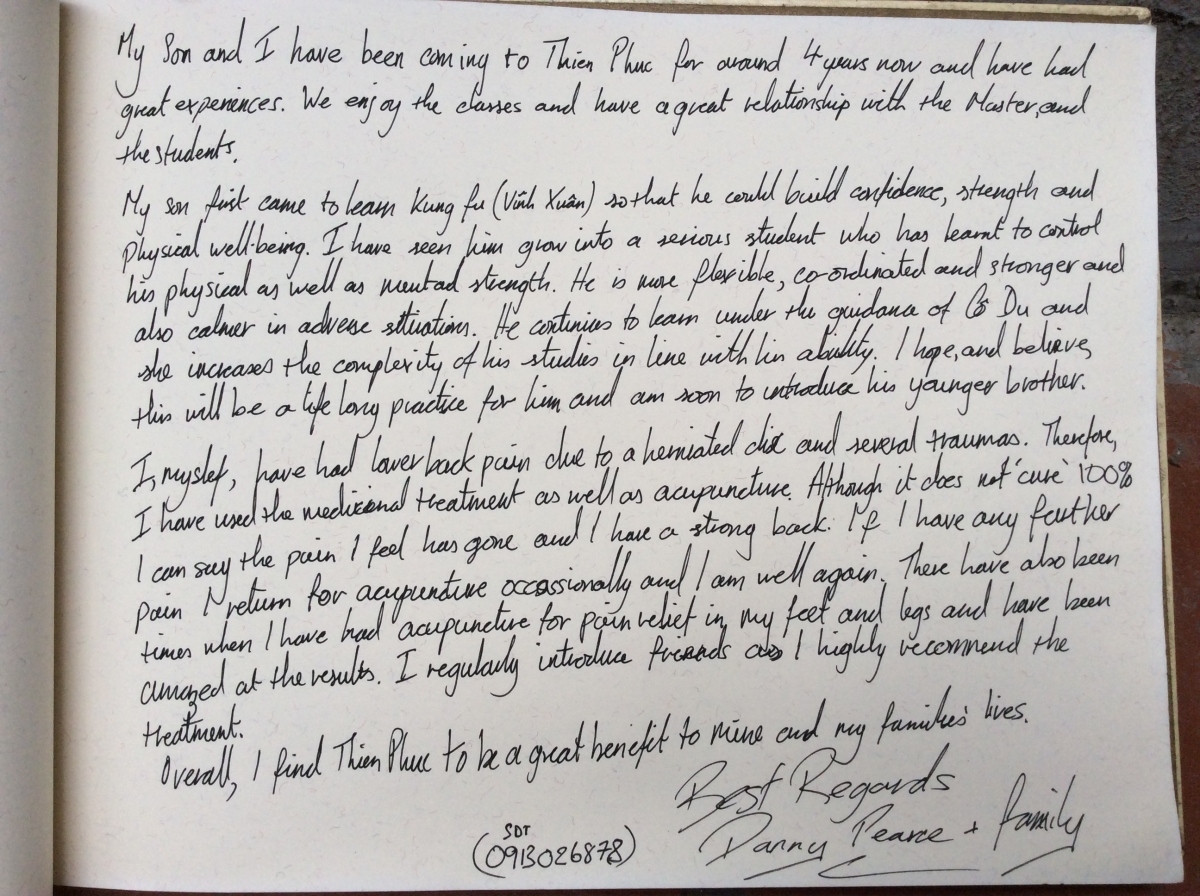 My Son and I have been coming to Thien Phuc for around 4 years now and have had
great experiences. We enjoy the classes and have a great relationship with the Master, and
the students.
My son first came to learn Kung fu (Vĩnh Xuân) so that he could build confidence, strength and
physical well-being. I have seen him grow into a serious student who has learnt to control
his physical as well as mental strength. He is more flexible, co-ordinated and stronger and
also calmer in adverse situations. He continues to learn under the guidance of Cô Du and
she increases the complexity of his studies in line with his ability. I hope, and believe,
this will be a life long practice for him and am soon to introduce his younger brother.
I, myslef, have had lower back pain due to a herniated disc and several traumas. Therefore,
I have used the medicinal treatment as well as acupuncture. Although it does not 'cure' 100%
I can say the pain I feel has gone and I have a strong back. If I have any further
pain I return for acupuncture occassionally and I am well again. There have also been
times when I have had acupuncture for pain relief in my feet and legs and have been
amazed at the results. I regularly introduce friends as I highly recommend the
treatment.
Overall, I find Thien Phuc to be a great benefit to mine and my families' lives.
Best Regards
Danny Pearce + family
SDT
(0913026878)